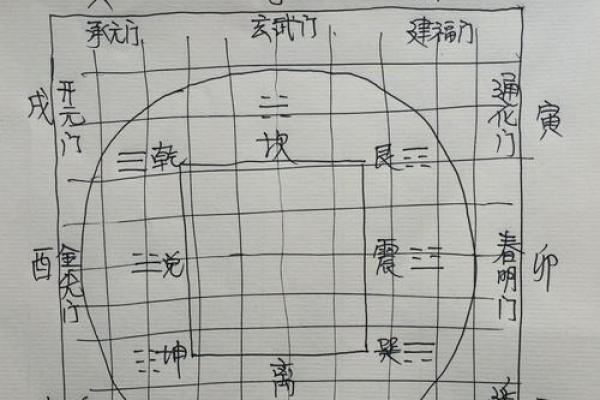 承元门 玄武门 建福门
戌 开元门 通化门 寅
乾 坎 艮
酉 金光门 兑 震 春明门 卯
坤 离 巽